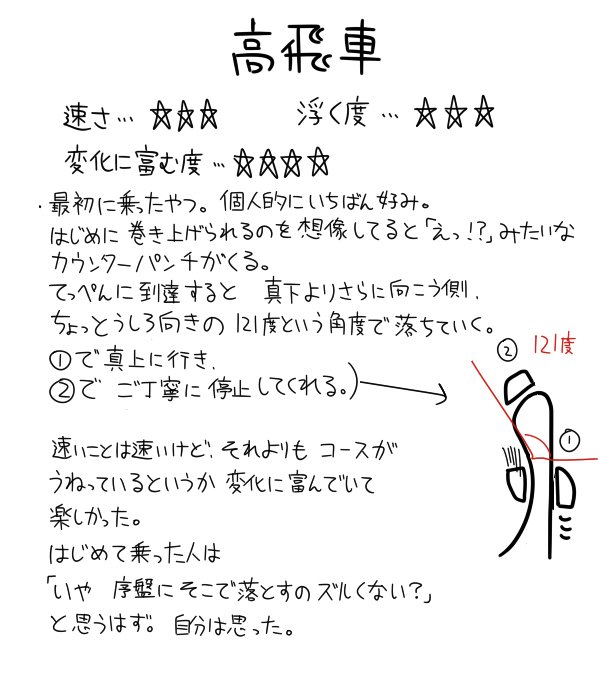 高飛車
速さ… ☆☆☆ 浮く度… ☆☆☆
変化に富む度… ☆☆☆☆
・最初に乗ったやつ。個人的にいちばん好み。
はじめに巻き上げられるのを想像してると「えっ!?」みたいな
カウンターパンチがくる。
てっぺんに到達すると 真下よりさらに向こう側、
ちょっとうしろ向きの121度という角度で落ちていく。
①で真上に行き、
②でご丁寧に停止してくれる。)
② 121度
①
速いことは速いけど、それよりもコースが
うねっているというか変化に富んでいて
楽しかった。
はじめて乗った人は
「いや 序盤にそこで落とすのズルくない?」
と思うはず。自分は思った。